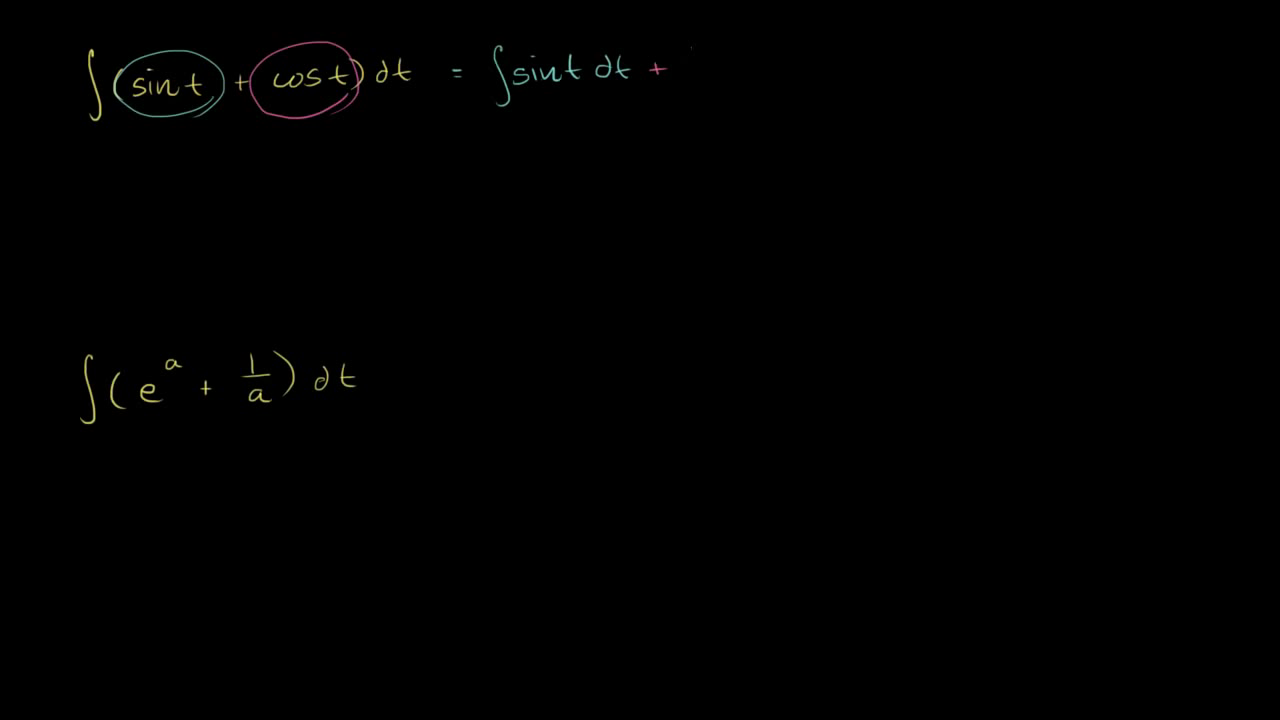 ∫(sin t + cos t) dt = ∫sin t dt +
∫(e^a + 1/a) dt